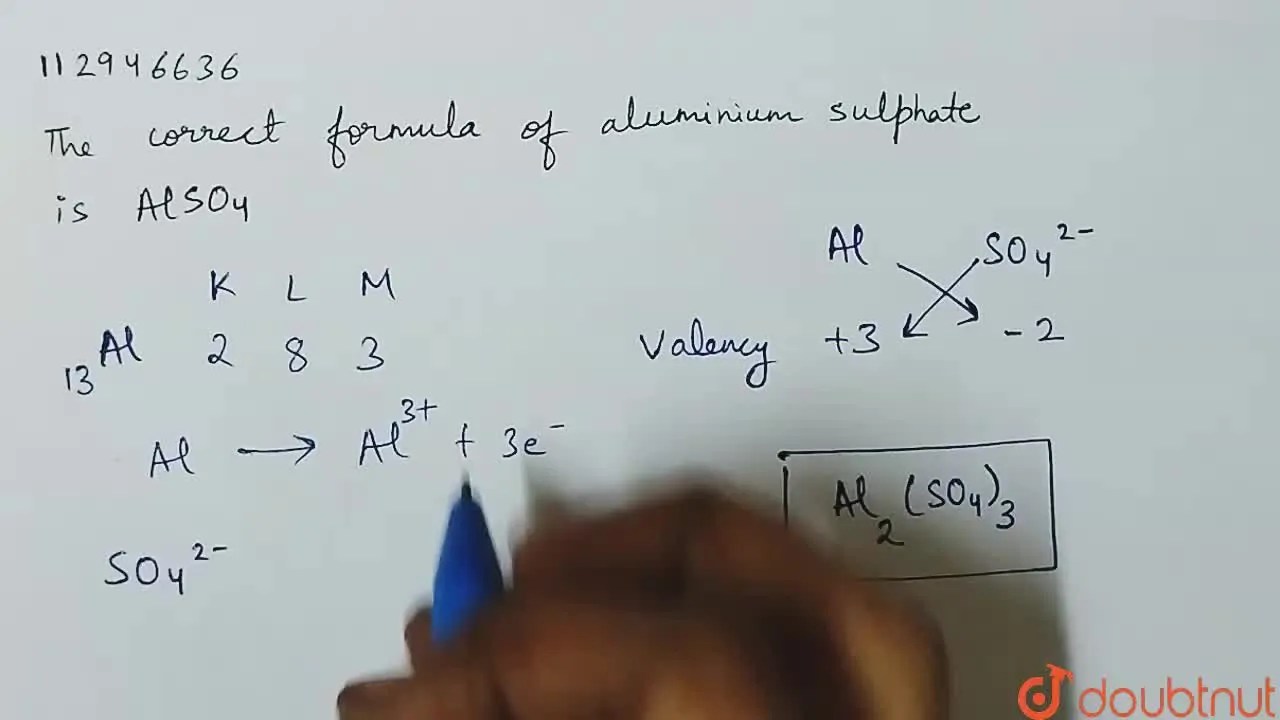 112946636
The correct formula of aluminium sulphate
is AlSO₄
K L M
₁₃Al 2 8 3
Al → Al³⁺ + 3e⁻
SO₄²⁻
Al SO₄²⁻
Valency +3 -2
Al₂(SO₄)₃
doubtnut